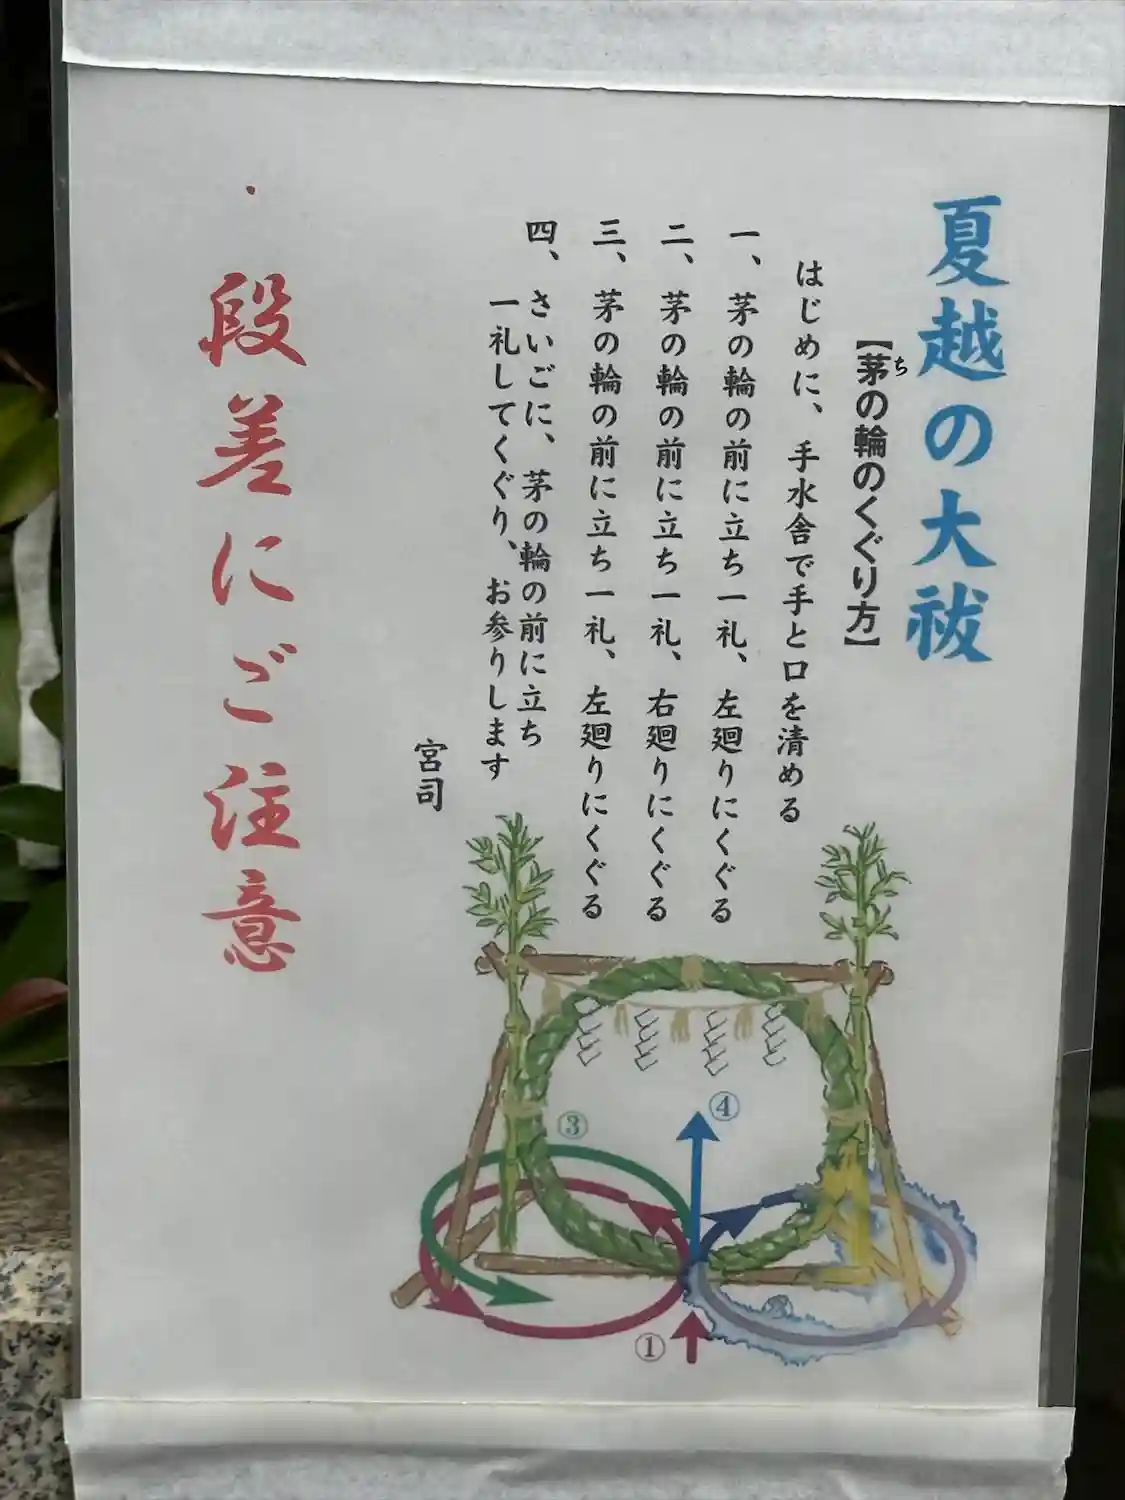 夏越の大祓
【茅の輪のくぐり方】
ち
はじめに、手水舎で手と口を清める
一、茅の輪の前に立ち一礼、左廻りにくぐる
二、茅の輪の前に立ち一礼、右廻りにくぐる
三、茅の輪の前に立ち一礼、左廻りにくぐる
四、さいごに、茅の輪の前に立ち
一礼してくぐり、お参りします
宮司
段差にご注意
④
③
①